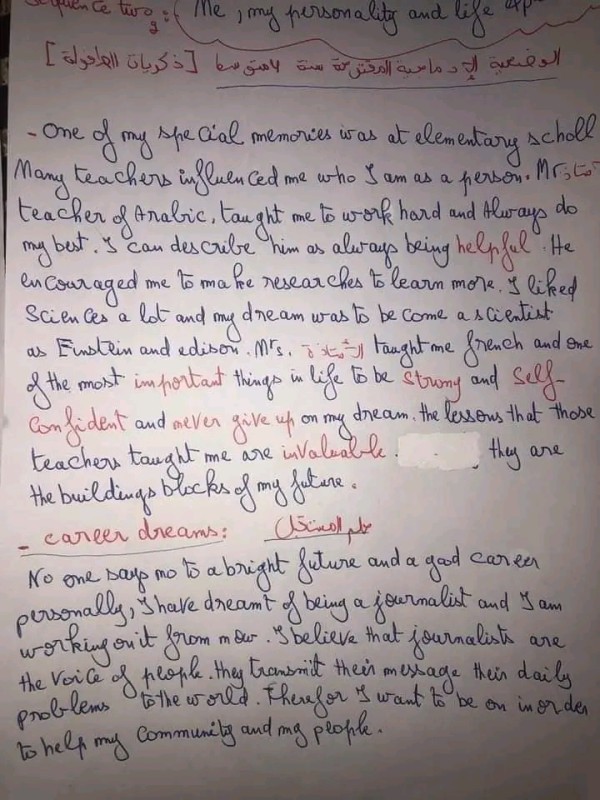 Sequence two: Me, my personality and life exp
الوضعية الإدماجية المقترحة سنة 4 متوسط [ذكريات الطفولة]
- One of my special memories was at elementary scholl
Many teachers influenced me who I am as a person. Mr
teacher of Arabic, taught me to work hard and Always do
my best. I can describe him as always being helpful. He
encouraged me to make researches to learn more. I liked
Sciences a lot and my dream was to become a scientist
as Einstein and edison. Mrs. الأستاذة taught me french and one
of the most important things in life to be strong and self-
confident and never give up on my dream. the lessons that those
teachers taught me are invaluable. they are
the buildings blocks of my future.
- career dreams: حلم المستقبل
No one says no to a bright future and a good career
personally, I have dreamt of being a journalist and I am
working on it from now. I believe that journalists are
the voice of people. they transmit their message their daily
problems to the world. Therefor I want to be on in order
to help my community and my people.